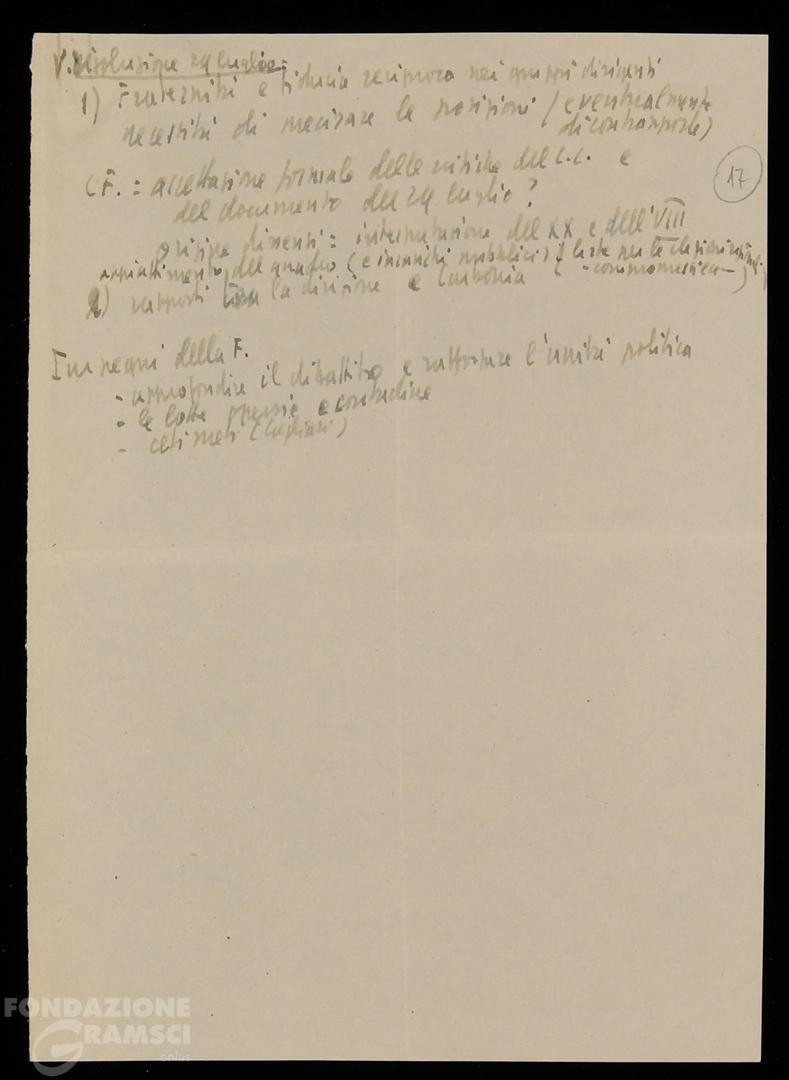 V. risoluzione 29 luglio:
1) Fraternità e fiducia reciproca nei gruppi dirigenti
necessità di precisare le posizioni (eventualmente
di contrapporle)
17
CF. : accettazione formale delle critiche del C.C. e
del documento del 29 luglio?
dissensi : interpretazione del XX e dell'VIII
appiattimento del quadro (e incarichi pubblici) liste per le elezioni
2) rapporti tra la divisione e Carbonia ( - compromestica - )
Impegni della F.
- approfondire il dibattito e rafforzare l'unità politica
- le lotte operaie e contadine
- ceti medi (Cagliari)
FONDAZIONE
GRAMSCI
onlus